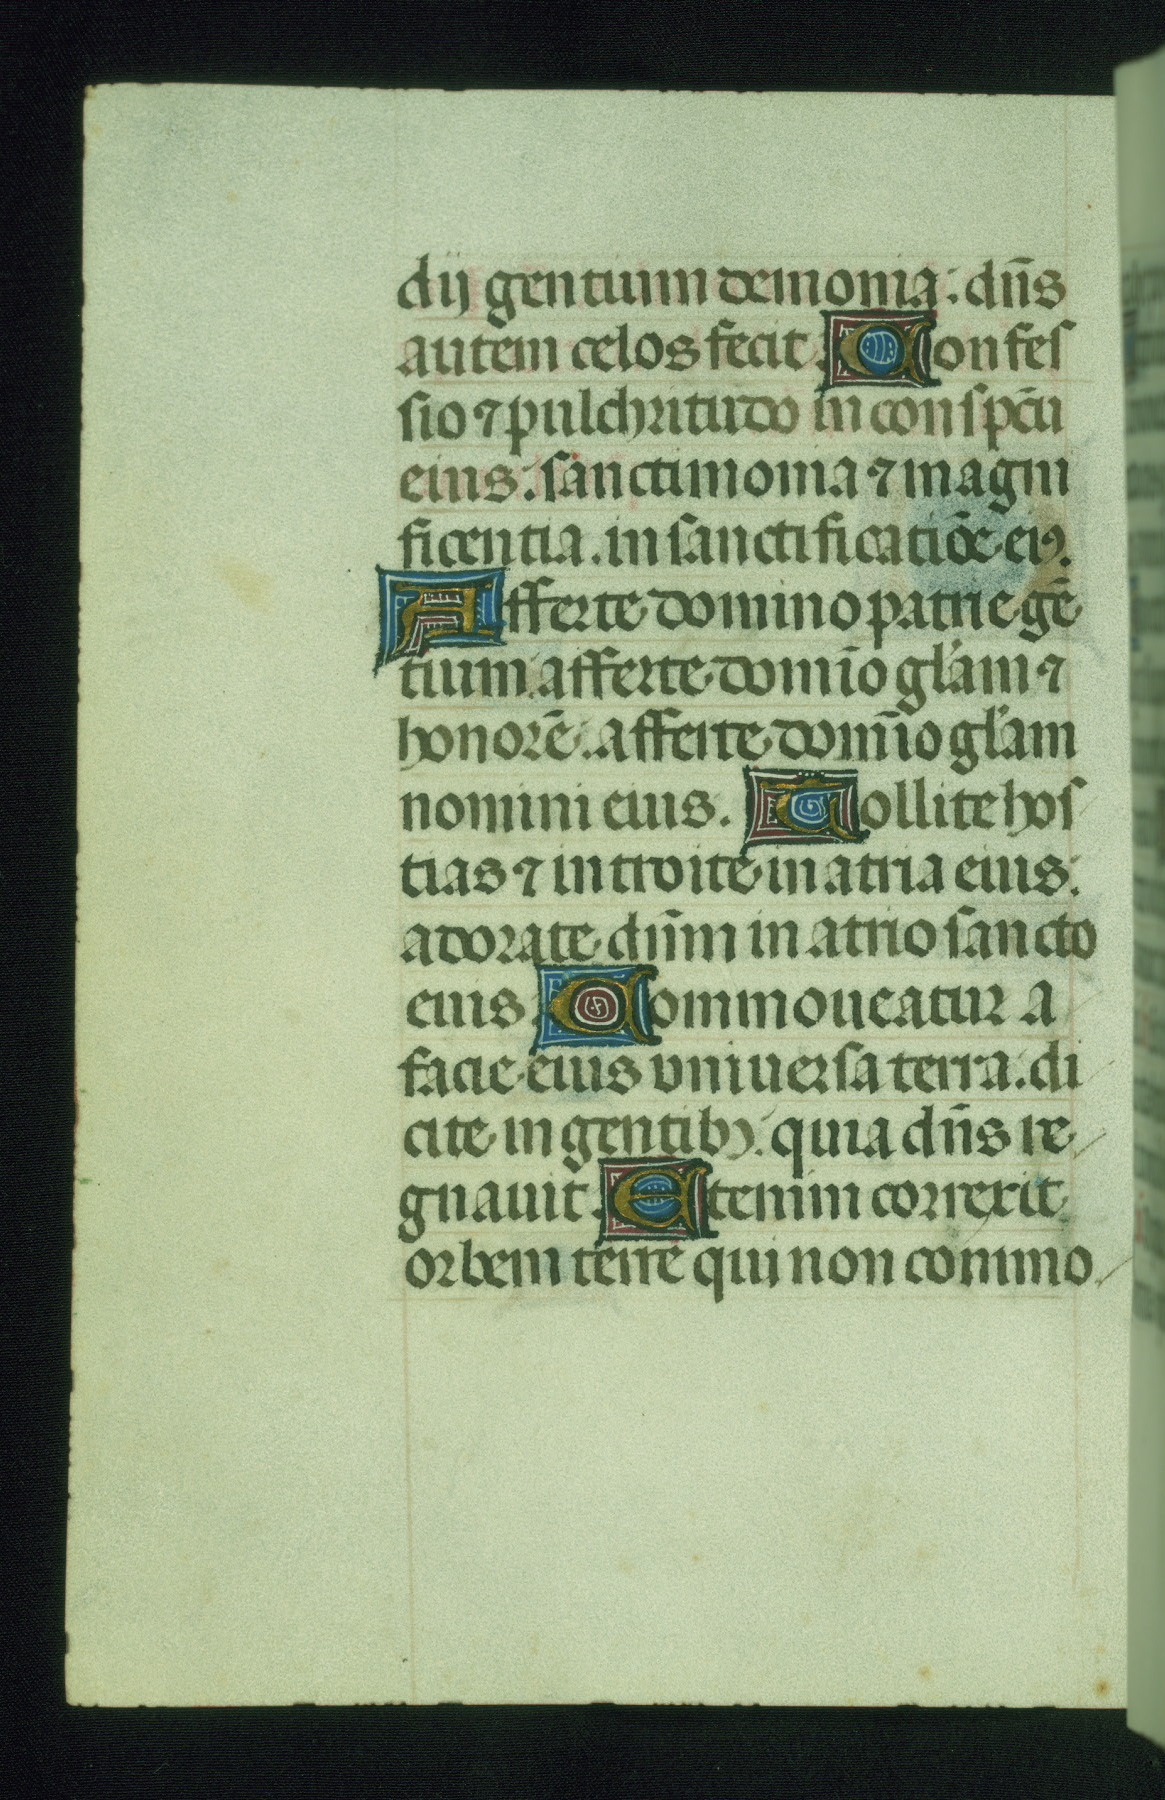 dij gentium demonia: dn̄s
autem celos fecit. Confes
sio ⁊ pulchritudo in conspc̄tu
eius: sanctimonia ⁊ magni
ficentia. in sanctificatiōe eiꝰ.
Afferte domino patrie gē
tium. afferte domīo gl'am ⁊
honorē. afferte domīo gl'am
nomini eius. Tollite hos
tias ⁊ introite in atria eius:
adorate dn̄m in atrio sancto
eius. Commoueatur a
facie eius vniuersa terra: di
cite in gentibꝫ. quia dn̄s re
gnauit. Etenim correxit
orbem terre qui non commo